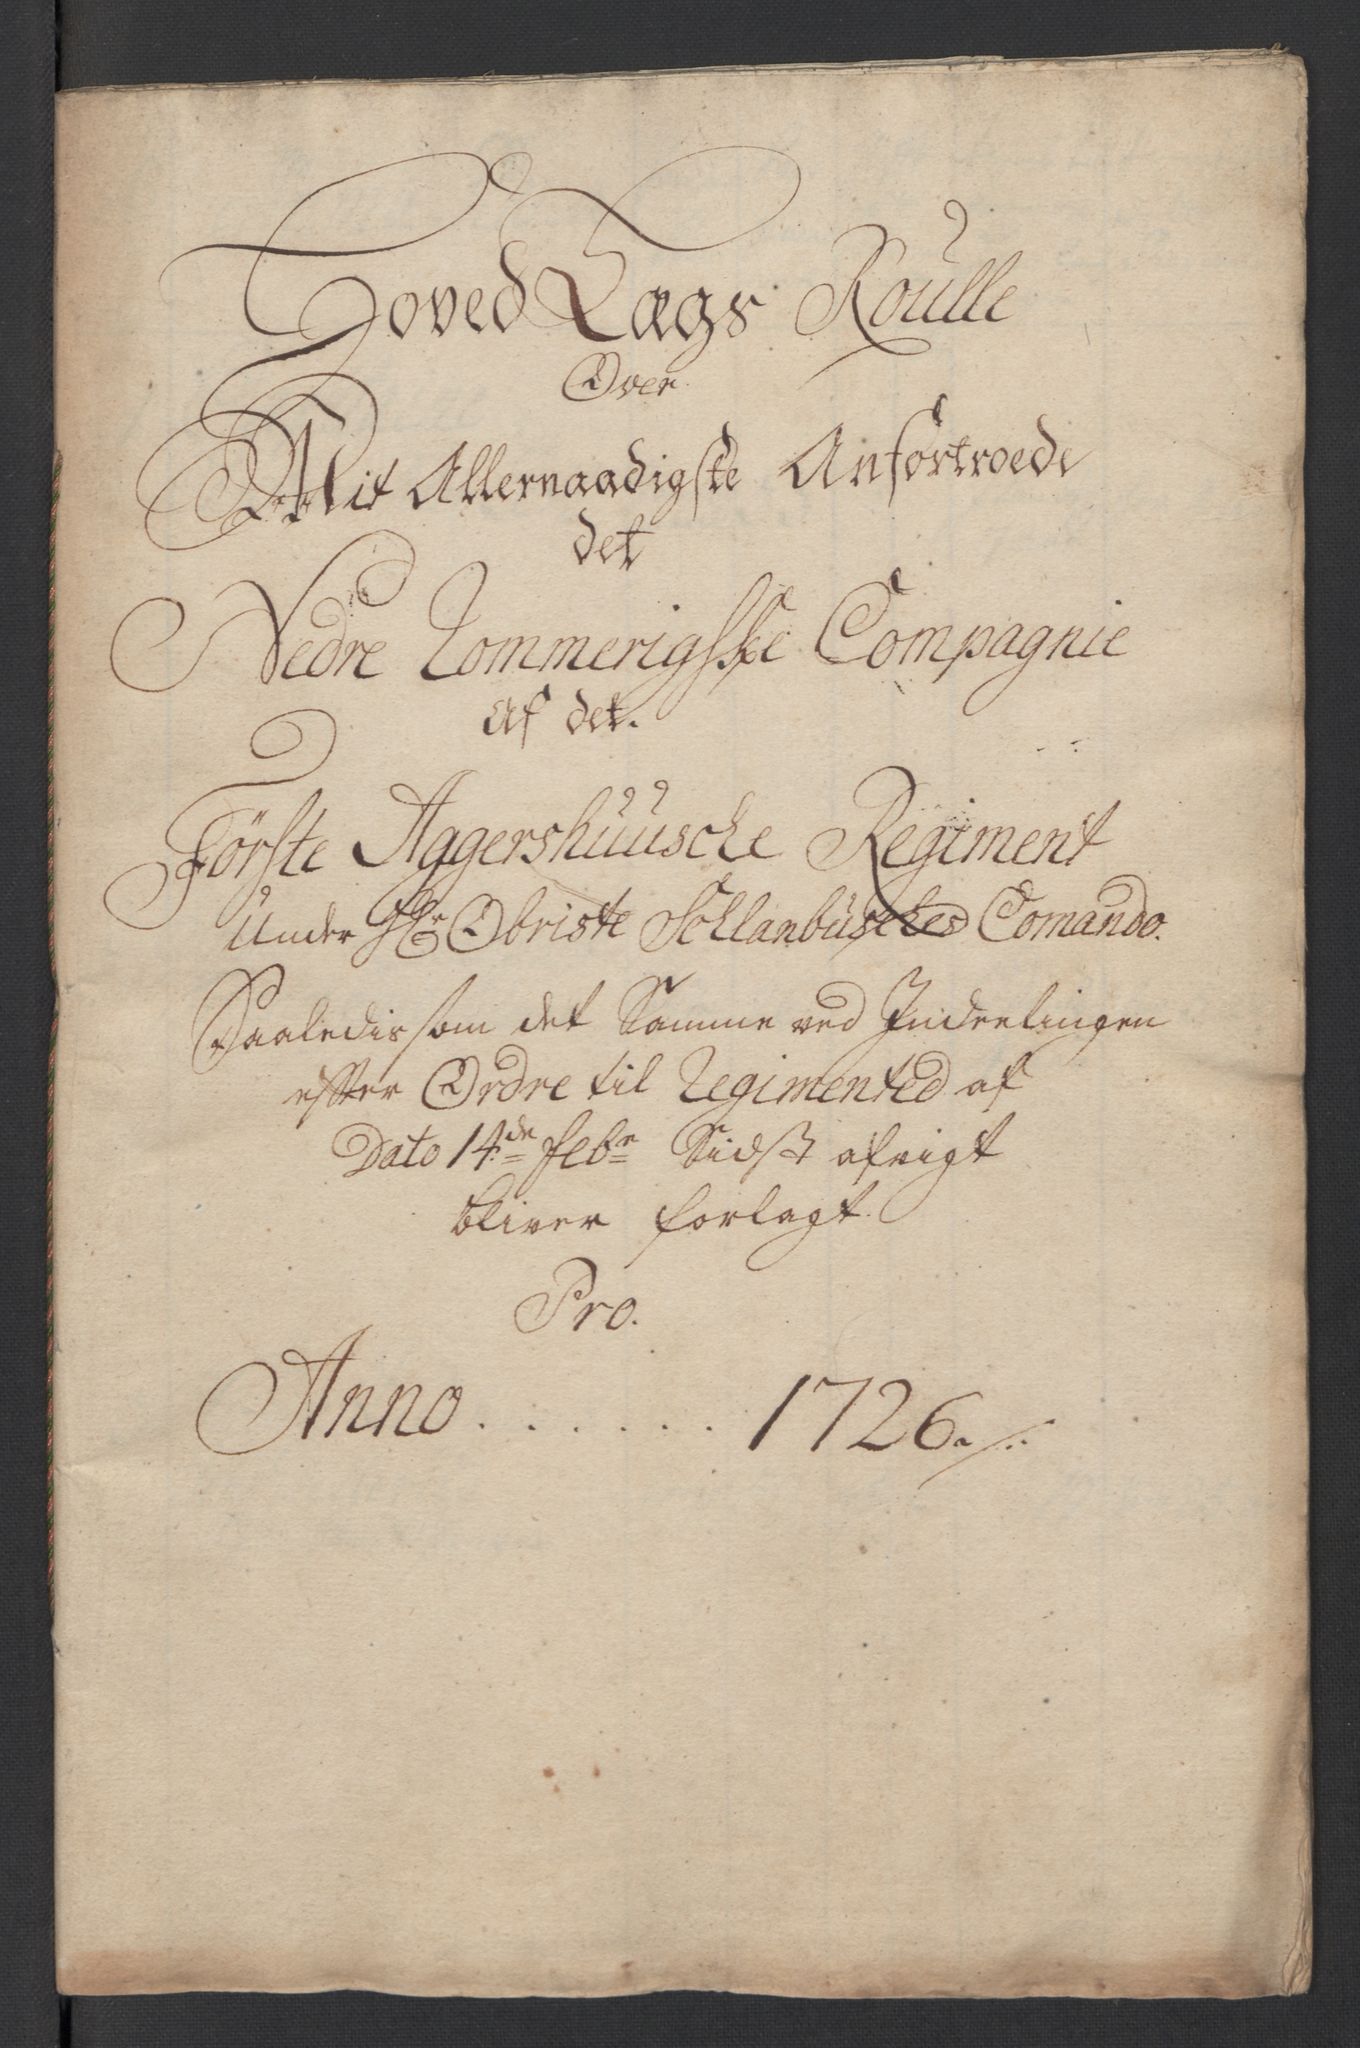 Hoved Lægs Roulle
Over
Mit Allernaadigste Anfortroede
det
Nedre Rommerigske Compagnie
af det.
Förste Aggershuusche Regiment
Under Hr Obriste Schlanbusches Comando.
Saaledis som det Samme ved Indeelingen
efter Ordre til Regimented af
Dato 14de Febr Sidst afvigt
bliver forlagt.
Pro.
Anno . . . . . . 1726